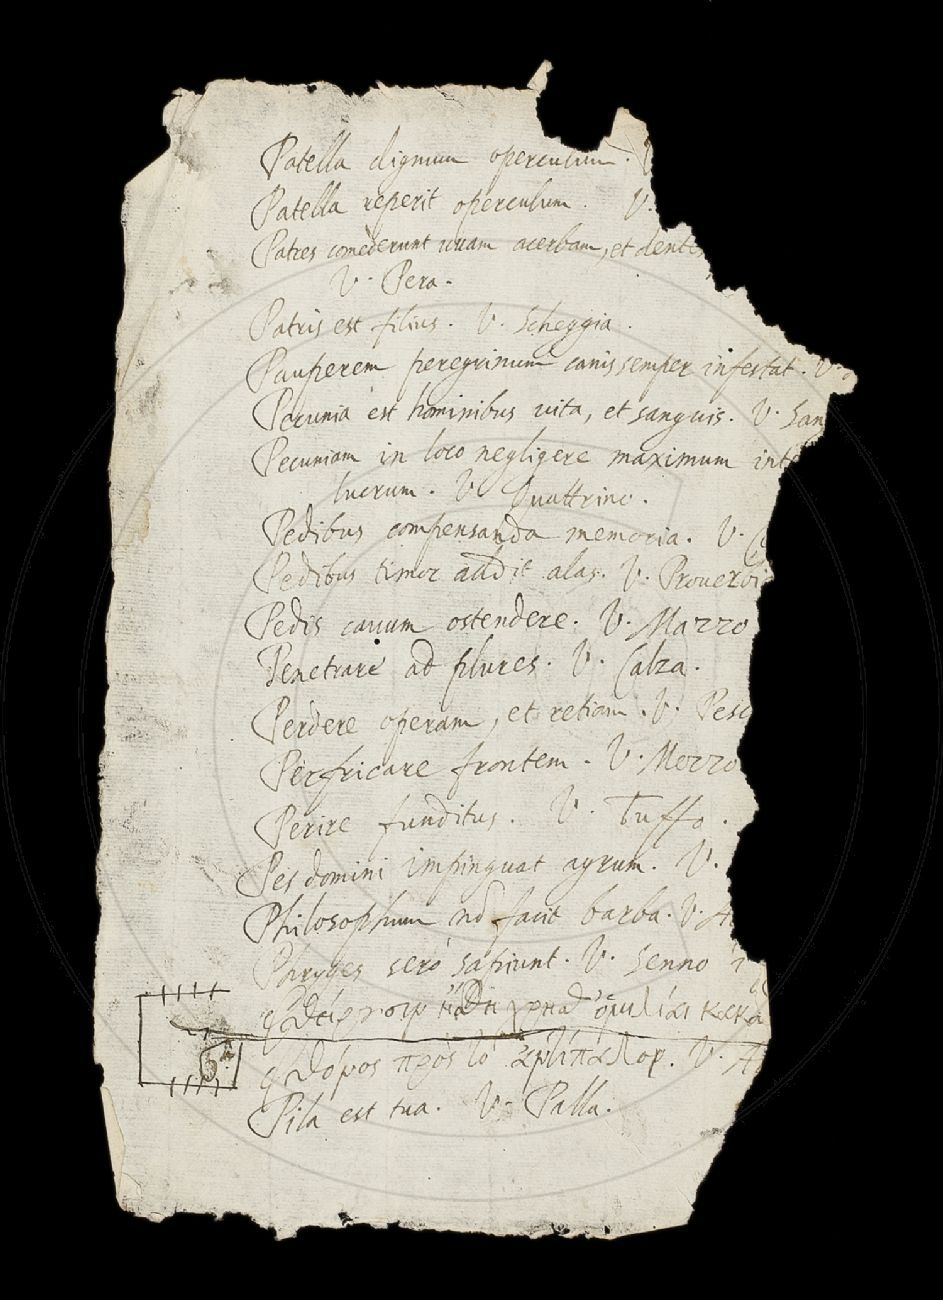 Patella dignum operculum.
Patella reperit operculum. V.
Patres comederunt uuam acerbam, et dent
V. Pera.
Patris est filius. V. Scheggia.
Pauperem peregrinum canis semper infestat. V.
Pecunia est hominibus uita, et sanguis. V. San
Pecuniam in loco negligere maximum int
lucrum. V. Quattrino.
Pedibus compensanda memoria. V.
Pedibus timor addit alas. V. Prouerbi
Pedis cauum ostendere. V. Mazzo
Penetrare ad plures. V. Calza.
Perdere operam, et retiam. V. Pesc
Perfricare frontem. V. Mozzo
Perire funditus. V. Tuffo.
Pes domini impinguat agrum. V.
Philosophum nō facit barba. V. A
Phryges serò sapiunt. V. Senno
φθείρουσιν ἤθη χρηστὰ ὁμιλίαι κακα
πρὸς V. A
Pila est tua. V. Palla.